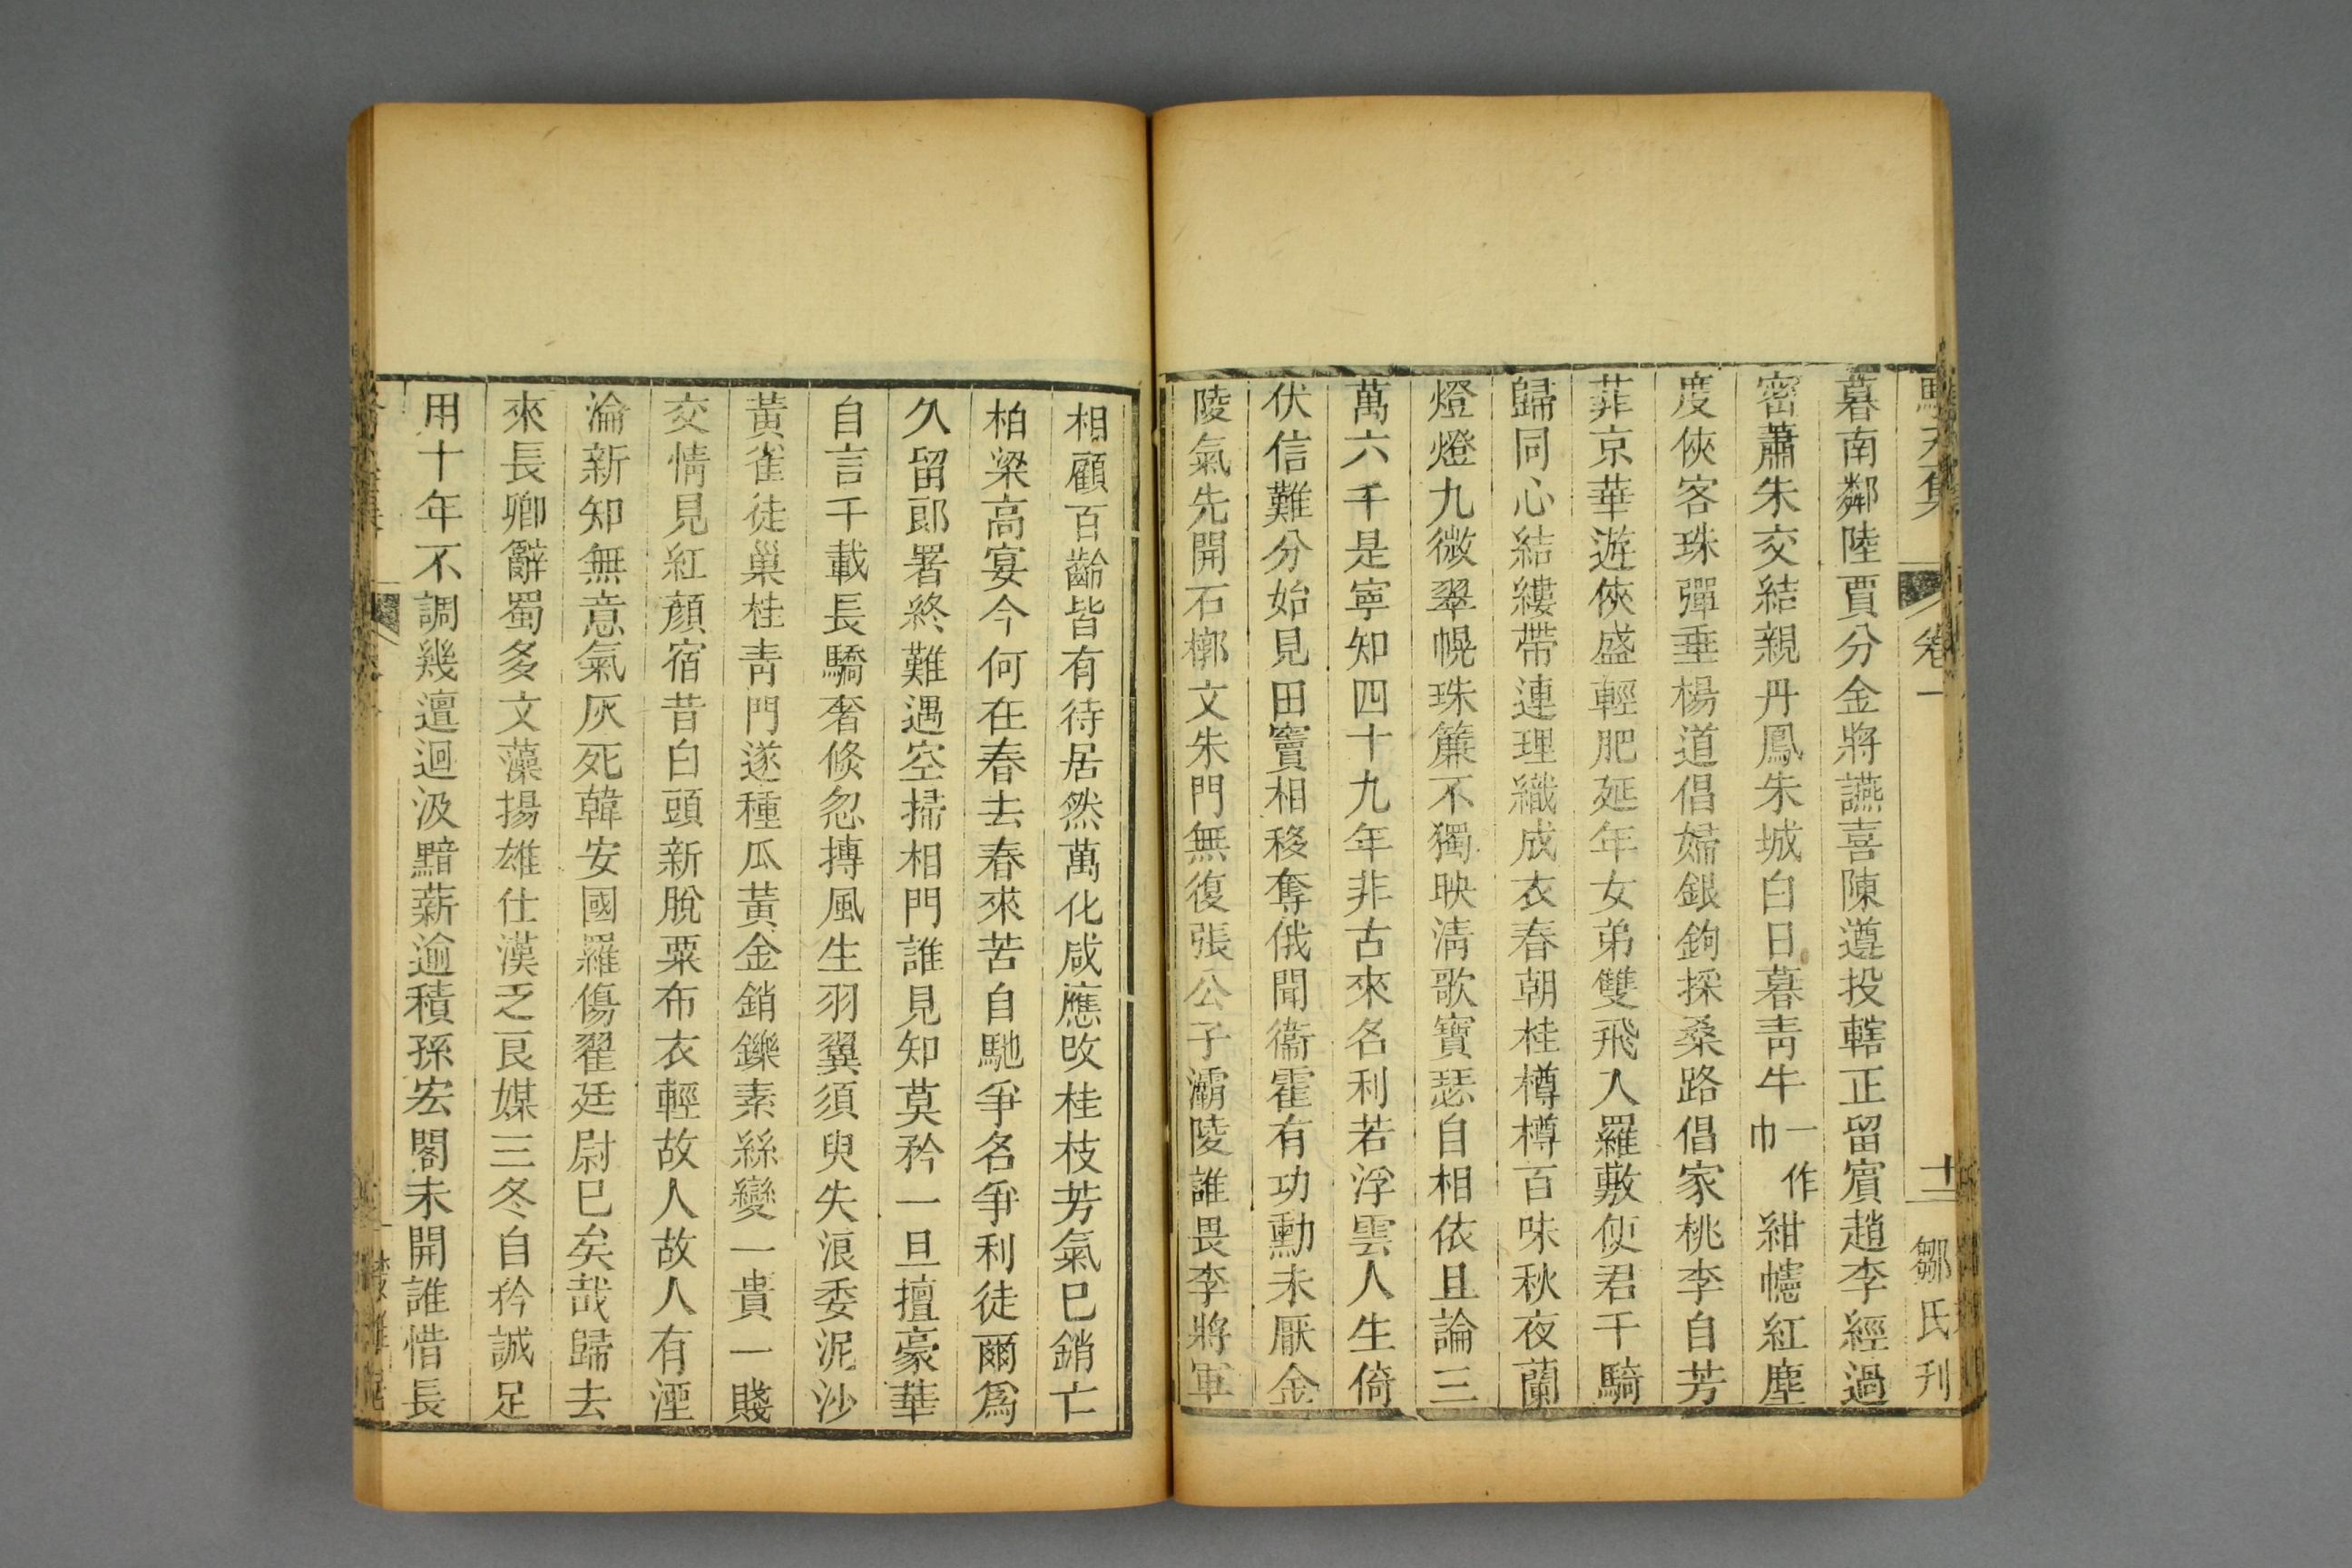 卷一
十一
鄒氏刊
暮南鄰陸賈分金將讌喜陳遵投轄正留賔趙李經過
密蕭朱交結親丹鳳朱城白日暮靑牛一作巾紺幰紅塵
度俠客珠彈垂楊道倡婦銀鉤採桑路倡家桃李自芳
菲京華遊俠盛輕肥延年女弟雙飛入羅敷使君千騎
歸同心結縷帶連理織成衣春朝桂樽樽百味秋夜蘭
燈燈九微翠幌珠簾不獨映淸歌寶瑟自相依且論三
萬六千是寧知四十九年非古來名利若浮雲人生倚
伏信難分始見田竇相移奪俄聞衞霍有功勳未厭金
陵氣先開石槨文朱門無復張公子灞陵誰畏李將軍
相顧百齡皆有待居然萬化咸應改桂枝芳氣已銷亡
柏梁高宴今何在春去春來苦自馳爭名爭利徒爾爲
久留郎署終難遇空掃相門誰見知莫矜一旦擅豪華
自言千載長驕奢倐忽搏風生羽翼須臾失浪委泥沙
黃雀徒巢桂靑門遂種瓜黃金銷鑠素絲變一貴一賤
交情見紅顏宿昔白頭新脫粟布衣輕故人故人有湮
淪新知無意氣灰死韓安國羅傷翟廷尉已矣哉歸去
來長卿辭蜀多文藻揚雄仕漢乏良媒三冬自矜誠足
用十年不調幾邅迴汲黯薪逾積孫宏閣未開誰惜長